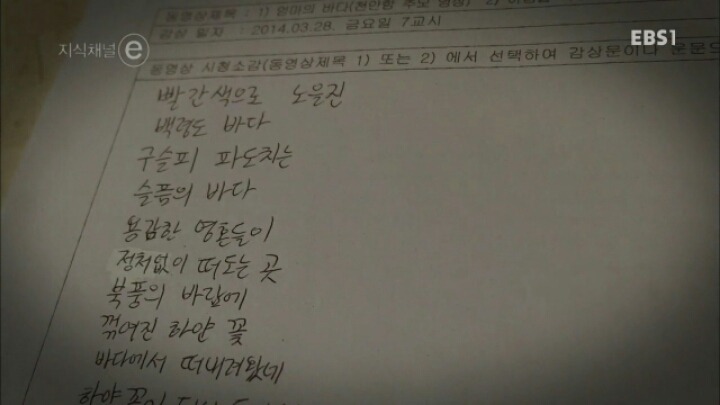 동영상제목 : 1) 엄마의 바다(천안함 추모 영상) 2)
감상 일자 : 2014.03.28. 금요일 7교시
EBS1
지식채널 e
동영상 시청소감(동영상제목 1) 또는 2) 에서 선택하여 감상문이나 운문으
빨간색으로 노을진
백령도 바다
구슬피 파도치는
슬픔의 바다
용감한 영혼들이
정처없이 떠도는 곳
북풍의 바람에
꺾여진 하얀 꽃
바다에서 떠내려왔네
하얀 꽃이